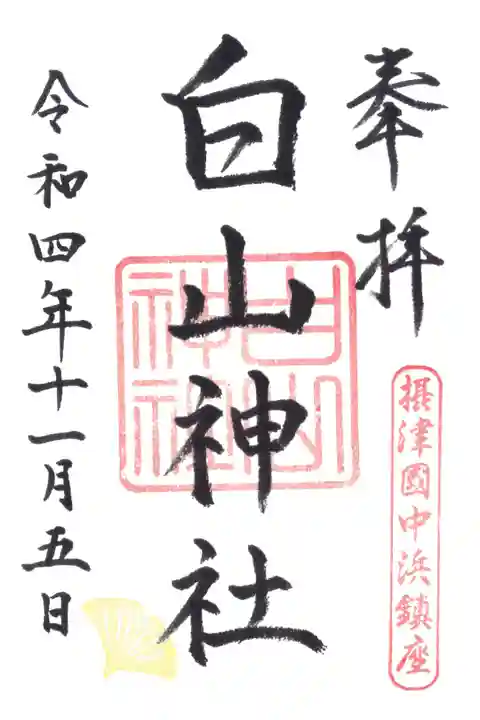 奉拝
摂津國中浜鎮座
白山神社
白山神社
令和四年十一月五日